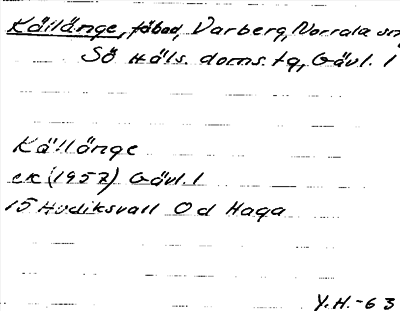 Källänge, fäbod, Varberg, Norrala sn
Sö Häls. doms. tg, Gävl. l
Källänge
ek (1957) Gävl. l
15 Hudiksvall Od Haga
Y.H.-63